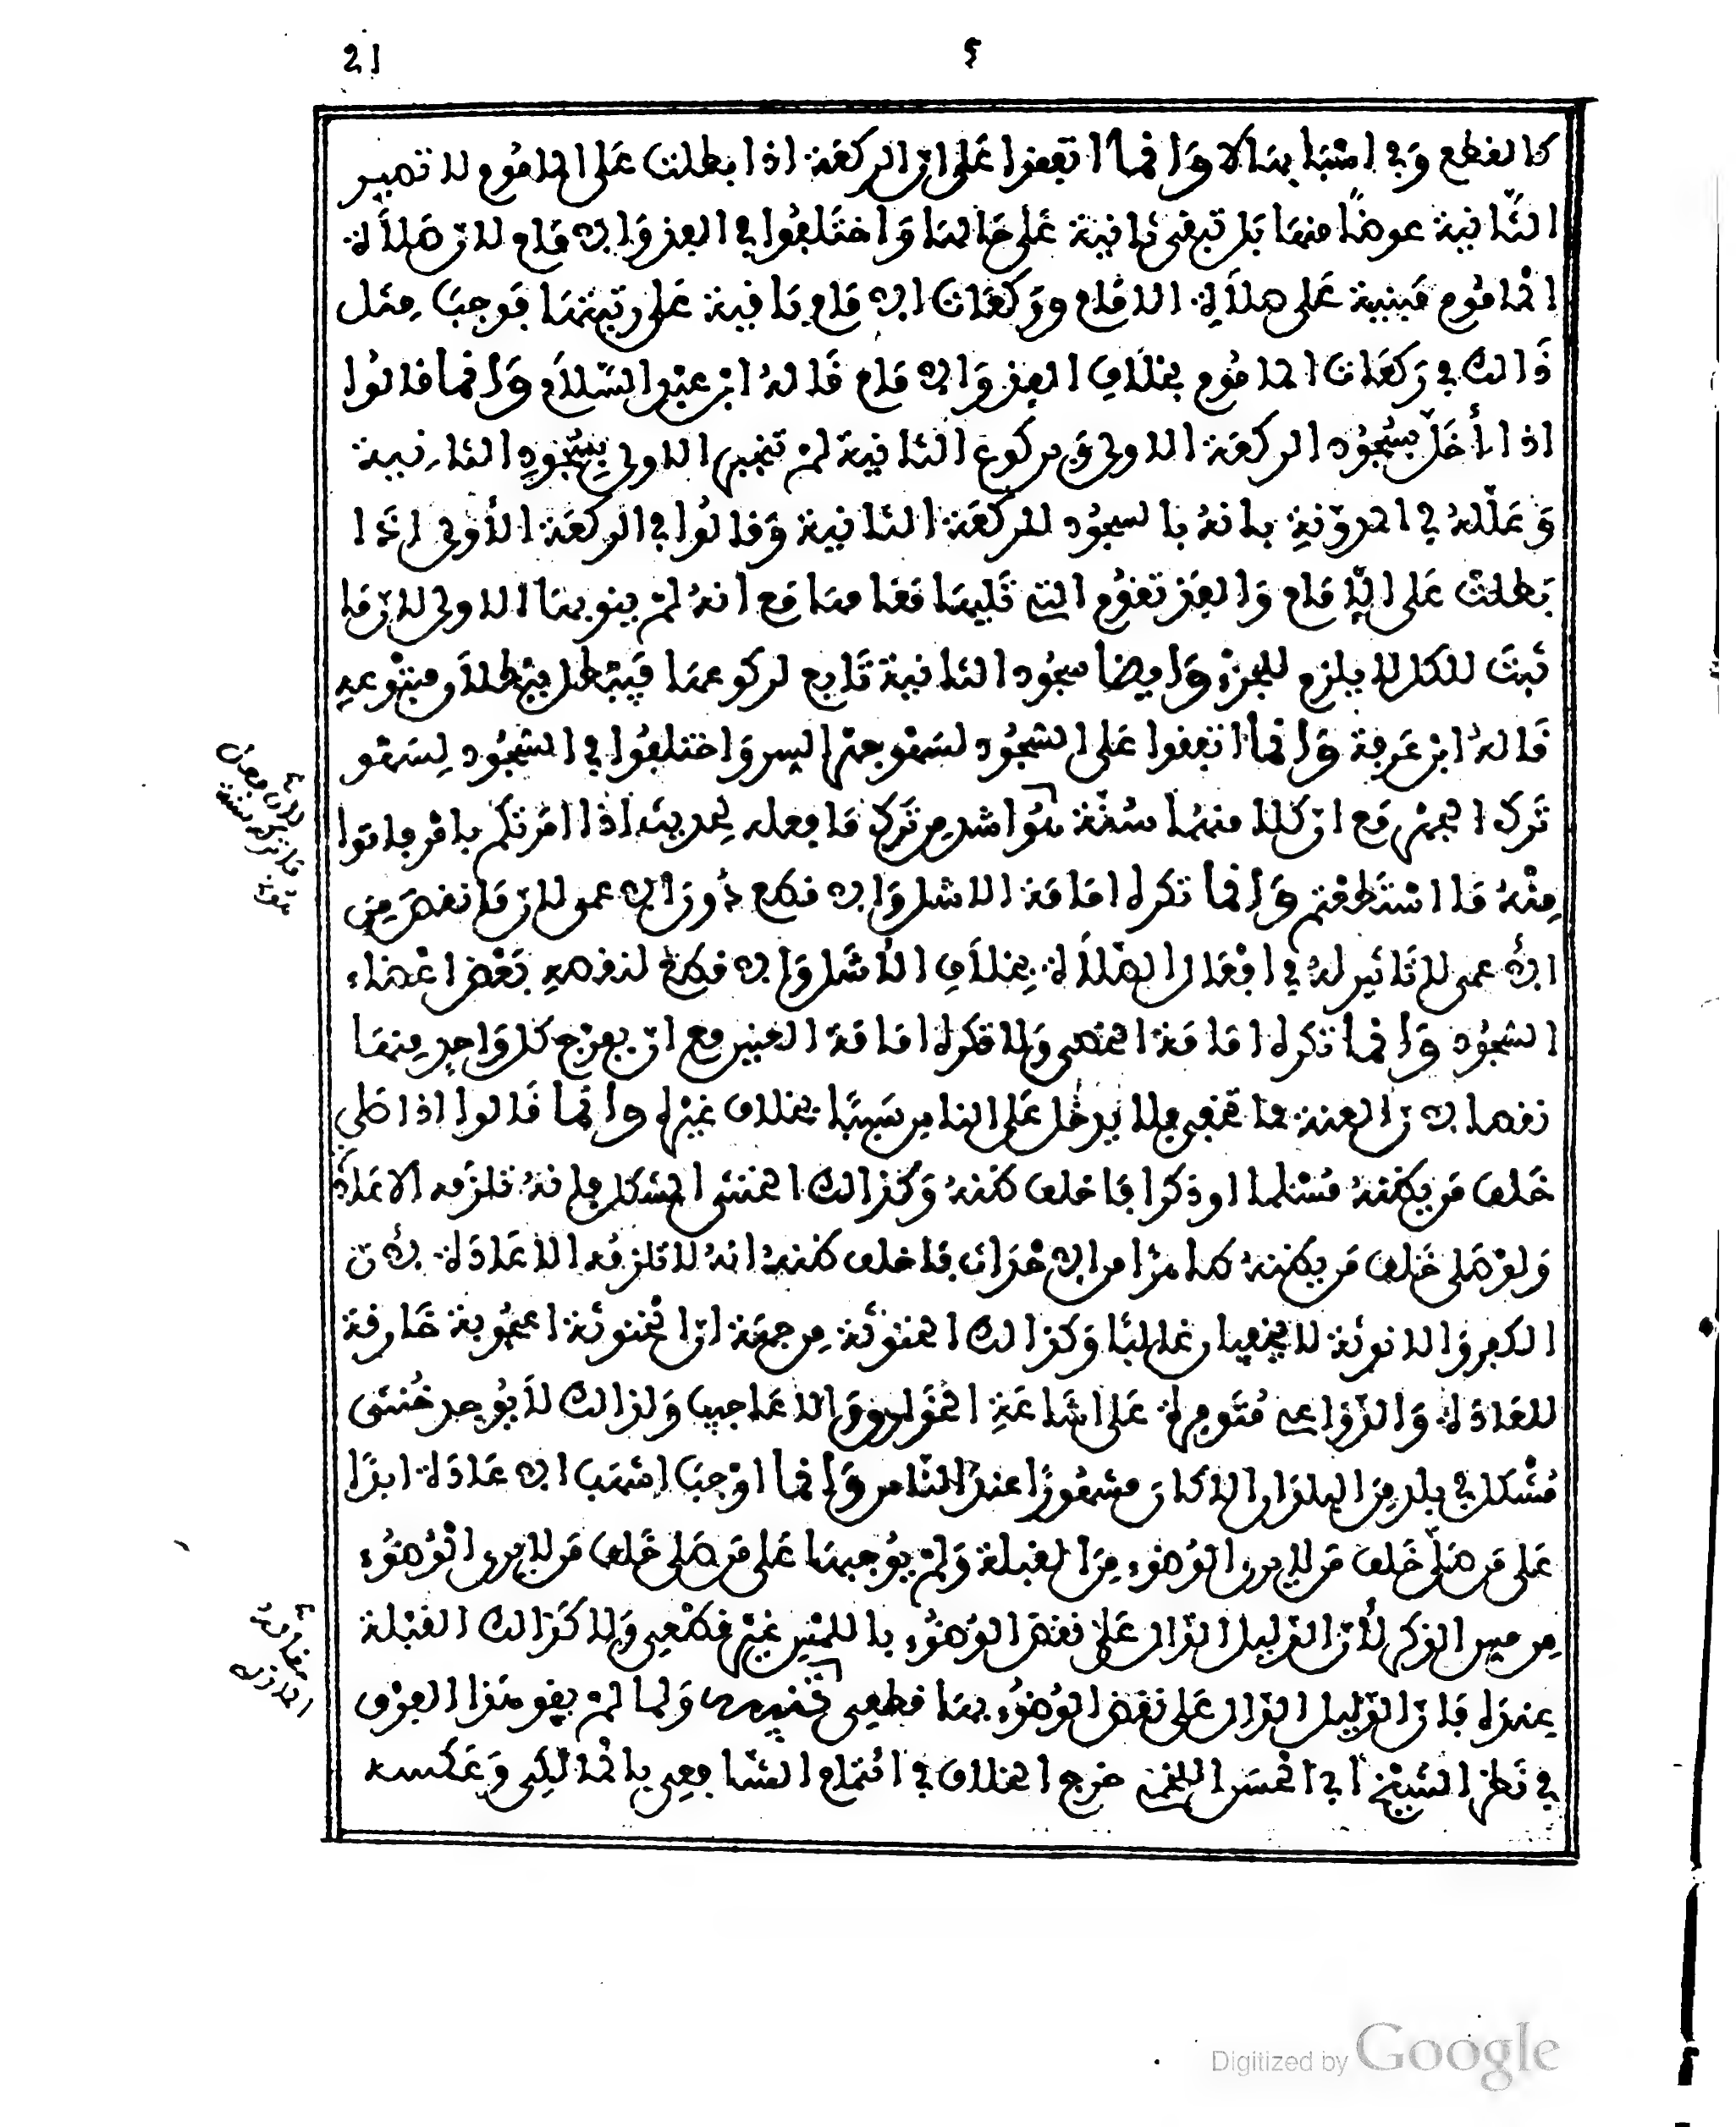 21
5
كالقطع وفي اشباههما لا وإنما اتفقوا على ان الركعة اذا بطلت على المأموم لا تصير
الثَّانية عوضًا منها بل تبقى ثانية على حالها واختلفوا في الفذ والامام لان صلاة
المأموم مبنية على صلاة الامام وركعات الامام باقية على رتبتها فوجب مثل
ذالك في ركعات المأموم بخلاف الفذ والامام قاله ابن عبد السلام وإنما قالوا
اذا أخل بسجود الركعة الاولى وبركوع الثانية لم تنجبر الاولى بسجود الثانية
وعلله في المدونة بانه بالسجود للركعة الثانية وقالوا في الركعة الأولى إذا
بطلت على الإمام والفذ تقوم التي تليها مقامها مع انه لم ينو بها الاولى لان ما
ثبت للكل لا يلزم للجزء وايضا سجود الثانية تابع لركوعها فيبطل ببطلان متبوعه
قاله ابن عرفة وإنما اتفقوا على السجود لسهو جهر السر واختلفوا في السجود لسهو
ترك الجهر مع ان كلا منهما سنة اشد من ترك ما فعله لحديث اذا امرتكم بامر فاتوا
منه ما استطعتم وإنما تكره امامة الاشل والاقطع دون الاعمى لان ما نقص من
الأعمى لا تأثير له في افعال الصلاة بخلاف الأشل والاقطع لنقصه بعض اعضاء
السجود وإنما تكره امامة الخصي ولا تكره امامة العنين مع ان بفرج كل واحد منهما
نقصا لان العنة مما تخفى فلا يدخل على الناس سببا بخلاف غيره وإنما قالوا اذا صلى
خلف من يظنه مسلما او ذكرا فاخلف ظنه وكذالك الخنثى المشكل فانه تلزمه الاعادة
ولو صلى خلف من يظنه طاهرا من الاحداث فاخلف ظنه انه لا تلزمه الاعادة لان
الكفر والانوثة لا يخفيان غالبا وكذالك الخنوثة من جهة ان الخنوثة اعجوبة خارقة
للعادة والدواعي متوفرة على اشاعة الخوارق والاعاجيب ولذالك لا يوجد خنثى
مشكل في بلد من البلدان الا كان مشهورًا عند الناس وإنما اوجب اشهب الاعادة ابدًا
على من صلى خلف من لا يرى الوضوء من القبلة ولم يوجبها على من صلى خلف من لا يرى الوضوء
من مس الذكر لأن الدليل الدال على نقض الوضوء باللمس غير قطعي ولا كذالك القبلة
عنده فان الدليل الدال على نقض الوضوء بها قطعي ولما لم يقو هذا الفرق
في نظر الشيخ أبي الحسن اللخمي خرج الخلاف في ائتمام الشافعي بالمالكي وعكسه